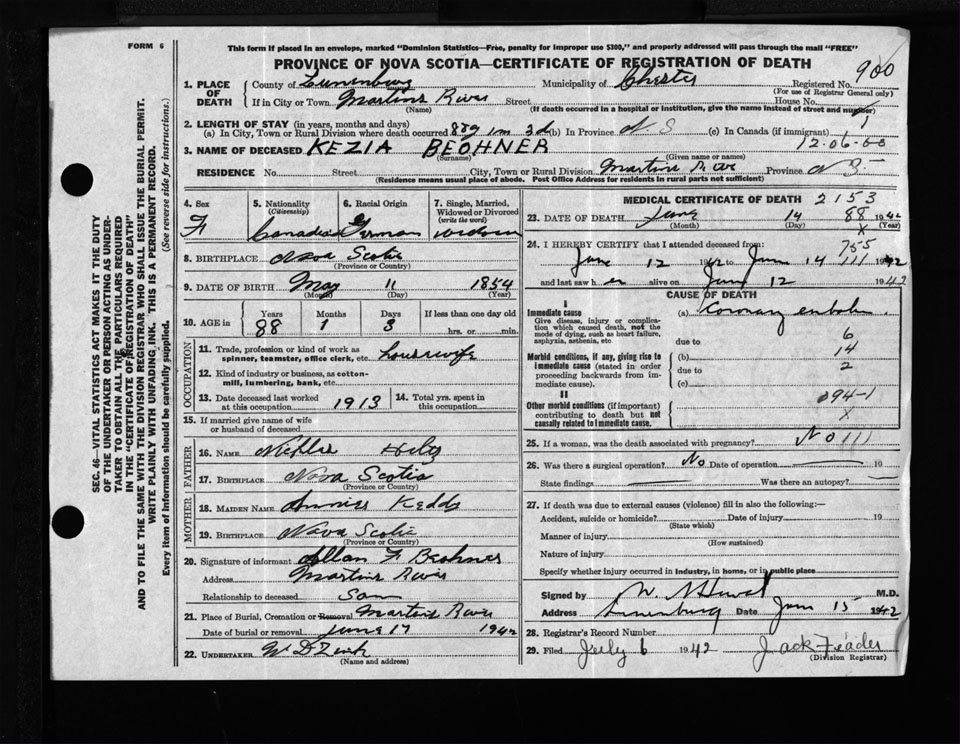 FORM 6
This form if placed in an envelope, marked "Dominion Statistics—Free, penalty for improper use $300," and properly addressed will pass through the mail "FREE"
PROVINCE OF NOVA SCOTIA—CERTIFICATE OF REGISTRATION OF DEATH
900
1. PLACE OF DEATH
County of Lunenburg Municipality of Chester Registered No.
(For use of Registrar General only)
If in City or Town Martins River Street House No.
(Name) (If death occurred in a hospital or institution, give the name instead of street and number)
2. LENGTH OF STAY (in years, months and days)
(a) In City, Town or Rural Division where death occurred 88y 1m 3d (b) In Province N.S (c) In Canada (if immigrant)
12.06.50
3. NAME OF DECEASED KEZIA BEOHNER
(Surname) (Given name or names)
RESIDENCE No. Street City, Town or Rural Division Martins River Province N.S.
(Residence means usual place of abode. Post Office Address for residents in rural parts not sufficient)
SEC. 46—VITAL STATISTICS ACT MAKES IT THE DUTY
OF THE UNDERTAKER OR PERSON ACTING AS UNDER-
TAKER TO OBTAIN ALL THE PARTICULARS REQUIRED
IN THE "CERTIFICATE OF REGISTRATION OF DEATH"
AND TO FILE THE SAME WITH THE DIVISION REGISTRAR WHO SHALL ISSUE THE BURIAL PERMIT.
WRITE PLAINLY WITH UNFADING INK. THIS IS A PERMANENT RECORD.
Every item of information should be carefully supplied. (See reverse side for instructions.)
4. Sex
F
5. Nationality
(Citizenship)
Canadian
6. Racial Origin
German
7. Single, Married, Widowed or Divorced
(write the word)
widow
8. BIRTHPLACE Nova Scotia
(Province or Country)
9. DATE OF BIRTH May 11 1854
(Month) (Day) (Year)
10. AGE in Years Months Days If less than one day old
88 1 3 hrs. or min.
OCCUPATION
11. Trade, profession or kind of work as
spinner, teamster, office clerk, etc. housewife
12. Kind of industry or business, as cotton-
mill, lumbering, bank, etc.
13. Date deceased last worked
at this occupation 1913
14. Total yrs. spent in
this occupation
15. If married give name of wife
or husband of deceased
FATHER
16. NAME Hilty
17. BIRTHPLACE Nova Scotia
(Province or Country)
MOTHER
18. MAIDEN NAME Keddy
19. BIRTHPLACE Nova Scotia
(Province or Country)
20. Signature of informant Allan F. Beohner
Address Martins River
Relationship to deceased Son
21. Place of Burial, Cremation or Removal Martins River
Date of burial or removal June 17 1942
22. UNDERTAKER W D
(Name and address)
MEDICAL CERTIFICATE OF DEATH 2153
23. DATE OF DEATH June 14 88 1942
(Month) (Day) X (Year)
24. I HEREBY CERTIFY that I attended deceased from:
755
June 12 1942 to June 14 111 1942
and last saw her alive on June 12 1942
CAUSE OF DEATH
I
Immediate cause
Give disease, injury or compli-
cation which caused death, not the
mode of dying, such as heart failure,
asphyxia, asthenia, etc.
(a) Coronary
due to 6
Morbid conditions, if any, giving rise to
immediate cause (stated in order
proceeding backwards from im-
mediate cause).
(b) 14
due to 2
(c)
II
Other morbid conditions (if important)
contributing to death but not
causally related to immediate cause.
094-1
X
25. If a woman, was the death associated with pregnancy? No 111
26. Was there a surgical operation? No Date of operation 19
State findings Was there an autopsy?
27. If death was due to external causes (violence) fill in also the following:—
Accident, suicide or homicide? Date of injury 19
(State which)
Manner of injury
(How sustained)
Nature of injury
Specify whether injury occurred in industry, in home, or in public place
Signed by M.D.
Address Lunenburg Date June 15 1942
28. Registrar's Record Number
29. Filed July 6 1942 Jack
(Division Registrar)